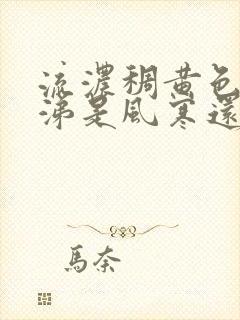 流濃稠黃色
涕是風寒還
馬奈